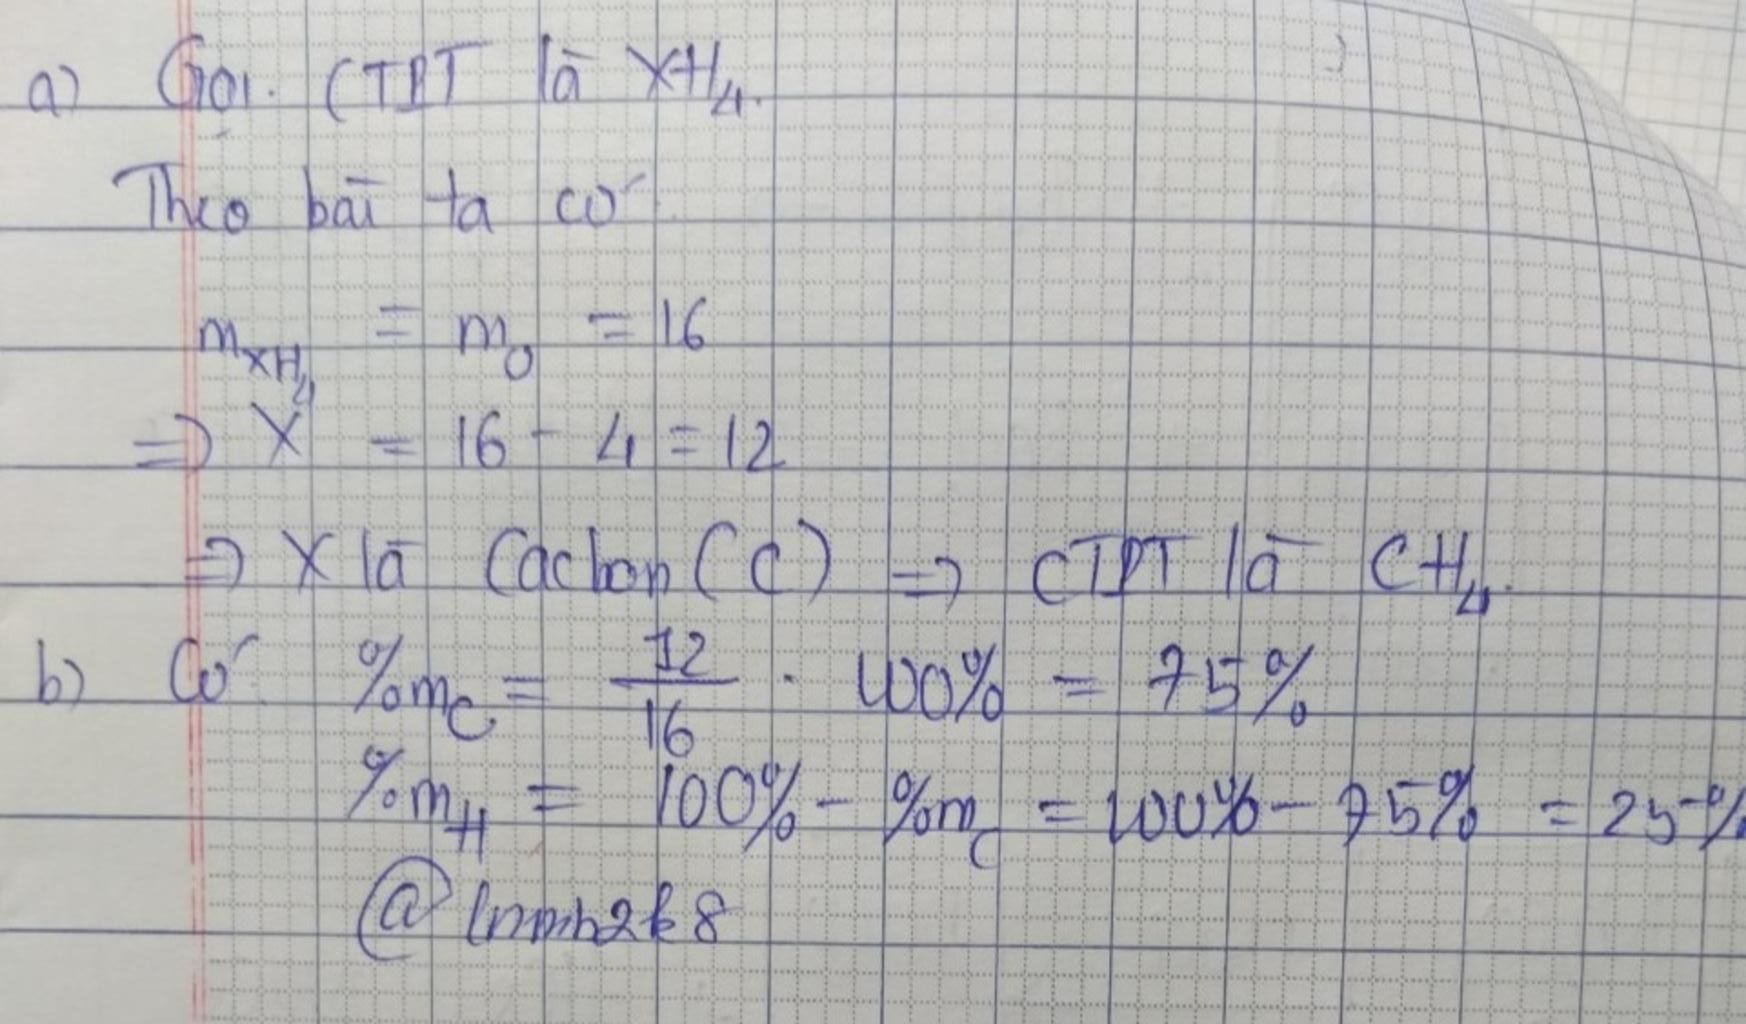 a) Gọi CTPT là XH₄.
Theo bài ta có
m_XH₄ = m_O = 16
=> X = 16 - 4 = 12
=> X là Cacbon (C) => CTPT là CH₄.
b) Có %m_C = 12/16 . 100% = 75%
%m_H = 100% - %m_C = 100% - 75% = 25%